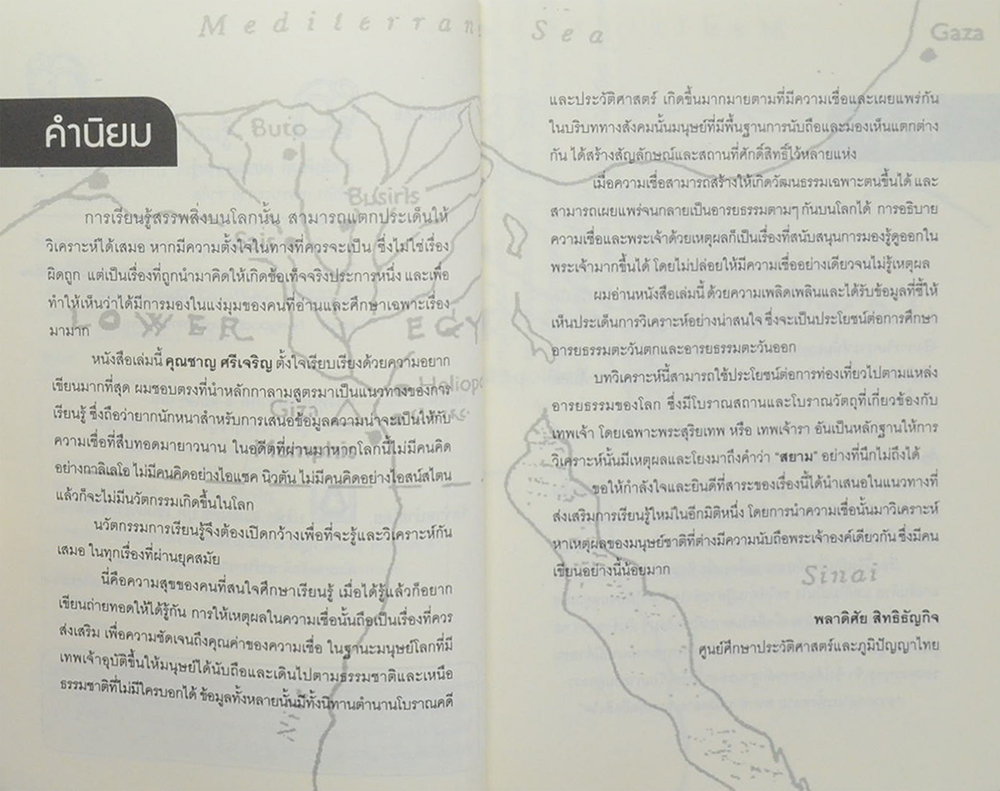 Mediterran Sea
Gaza
คำนิยม
Buto
Busiris
การเรียนรู้สรรพสิ่งบนโลกนั้น สามารถแตกประเด็นให้
วิเคราะห์ได้เสมอ หากมีความตั้งใจในทางที่ควรจะเป็น ซึ่งไม่ใช่เรื่อง
ผิดถูก แต่เป็นเรื่องที่ถูกนำมาคิดให้เกิดข้อเท็จจริงประการหนึ่ง และเพื่อ
ทำให้เห็นว่าได้มีการมองในแง่มุมของคนที่อ่านและศึกษาเฉพาะเรื่อง
มามาก
LOWER EGY
หนังสือเล่มนี้ คุณชาญ ศรีเจริญ ตั้งใจเรียบเรียงด้วยความอยาก
เขียนมากที่สุด ผมชอบตรงที่นำหลักกาลามสูตรมาเป็นแนวทางของการ
Heliopo
เรียนรู้ ซึ่งถือว่ายากนักหนาสำหรับการเสนอข้อมูลความน่าจะเป็นให้กับ
Giza
ความเชื่อที่สืบทอดมายาวนาน ในอดีตที่ผ่านมาหากโลกนี้ไม่มีคนคิด
Memphis
อย่างกาลิเลโอ ไม่มีคนคิดอย่างไอแซค นิวตัน ไม่มีคนคิดอย่างไอสน์สไตน
แล้วก็จะไม่มีนวัตกรรมเกิดขึ้นในโลก
นวัตกรรมการเรียนรู้จึงต้องเปิดกว้างเพื่อที่จะรู้และวิเคราะห์กัน
เสมอ ในทุกเรื่องที่ผ่านยุคสมัย
นี่คือความสุขของคนที่สนใจศึกษาเรียนรู้ เมื่อได้รู้แล้วก็อยาก
เขียนถ่ายทอดให้ได้รู้กัน การให้เหตุผลในความเชื่อนั้นถือเป็นเรื่องที่ควร
ส่งเสริม เพื่อความชัดเจนถึงคุณค่าของความเชื่อ ในฐานะมนุษย์โลกที่มี
เทพเจ้าอุบัติขึ้นให้มนุษย์ได้นับถือและเดินไปตามธรรมชาติและเหนือ
ธรรมชาติที่ไม่มีใครบอกได้ ข้อมูลทั้งหลายนั้นมีทั้งนิทานตำนานโบราณคดี
และประวัติศาสตร์ เกิดขึ้นมากมายตามที่มีความเชื่อและเผยแพร่กัน
ในบริบททางสังคมนั้นมนุษย์ที่มีพื้นฐานการนับถือและมองเห็นแตกต่าง
กัน ได้สร้างสัญลักษณ์และสถานที่ศักดิ์สิทธิ์ไว้หลายแห่ง
เมื่อความเชื่อสามารถสร้างให้เกิดวัฒนธรรมเฉพาะตนขึ้นได้ และ
สามารถเผยแพร่จนกลายเป็นอารยธรรมตามๆ กันบนโลกได้ การอธิบาย
ความเชื่อและพระเจ้าด้วยเหตุผลก็เป็นเรื่องที่สนับสนุนการมองรู้ดูออกใน
พระเจ้ามากขึ้นได้ โดยไม่ปล่อยให้มีความเชื่ออย่างเดียวจนไม่รู้เหตุผล
ผมอ่านหนังสือเล่มนี้ ด้วยความเพลิดเพลินและได้รับข้อมูลที่ชี้ให้
เห็นประเด็นการวิเคราะห์อย่างน่าสนใจ ซึ่งจะเป็นประโยชน์ต่อการศึกษา
อารยธรรมตะวันตกและอารยธรรมตะวันออก
บทวิเคราะห์นี้สามารถใช้ประโยชน์ต่อการท่องเที่ยวไปตามแหล่ง
อารยธรรมของโลก ซึ่งมีโบราณสถานและโบราณวัตถุที่เกี่ยวข้องกับ
เทพเจ้า โดยเฉพาะพระสุริยเทพ หรือ เทพเจ้ารา อันเป็นหลักฐานให้การ
วิเคราะห์นั้นมีเหตุผลและโยงมาถึงคำว่า "สยาม" อย่างที่นึกไม่ถึงได้
ขอให้กำลังใจและยินดีที่สาระของเรื่องนี้ได้นำเสนอในแนวทางที่
ส่งเสริมการเรียนรู้ใหม่ในอีกมิติหนึ่ง โดยการนำความเชื่อนั้นมาวิเคราะห์
หาเหตุผลของมนุษย์ชาติที่ต่างมีความนับถือพระเจ้าองค์เดียวกัน ซึ่งมีคน
เขียนอย่างนี้น้อยมาก
Sinai
พลาดิศัย สิทธิธัญกิจ
ศูนย์ศึกษาประวัติศาสตร์และภูมิปัญญาไทย